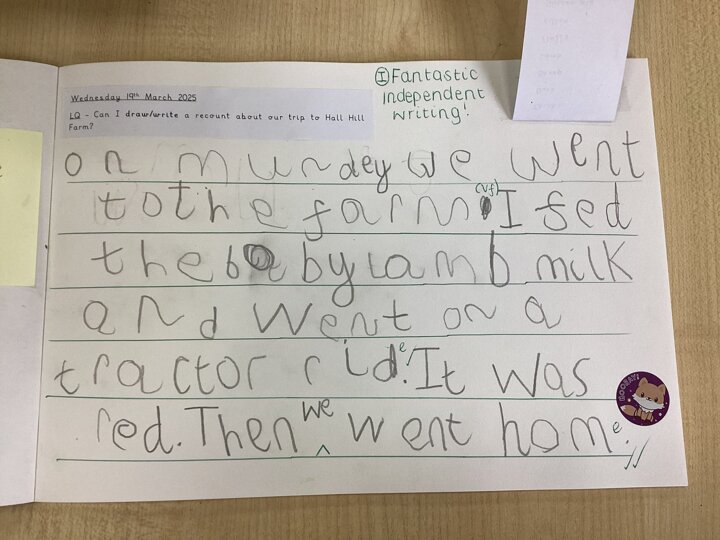 Wednesday 19th March 2025
LQ - Can I draw/write a recount about our trip to Hall Hill
Farm?
I Fantastic
independent
writing!
on mundey we went
to the farm. (vf) I fed
the baby lamb milk
and went on a
tractor ride. It was
red. Then we went home.
HOORAY!